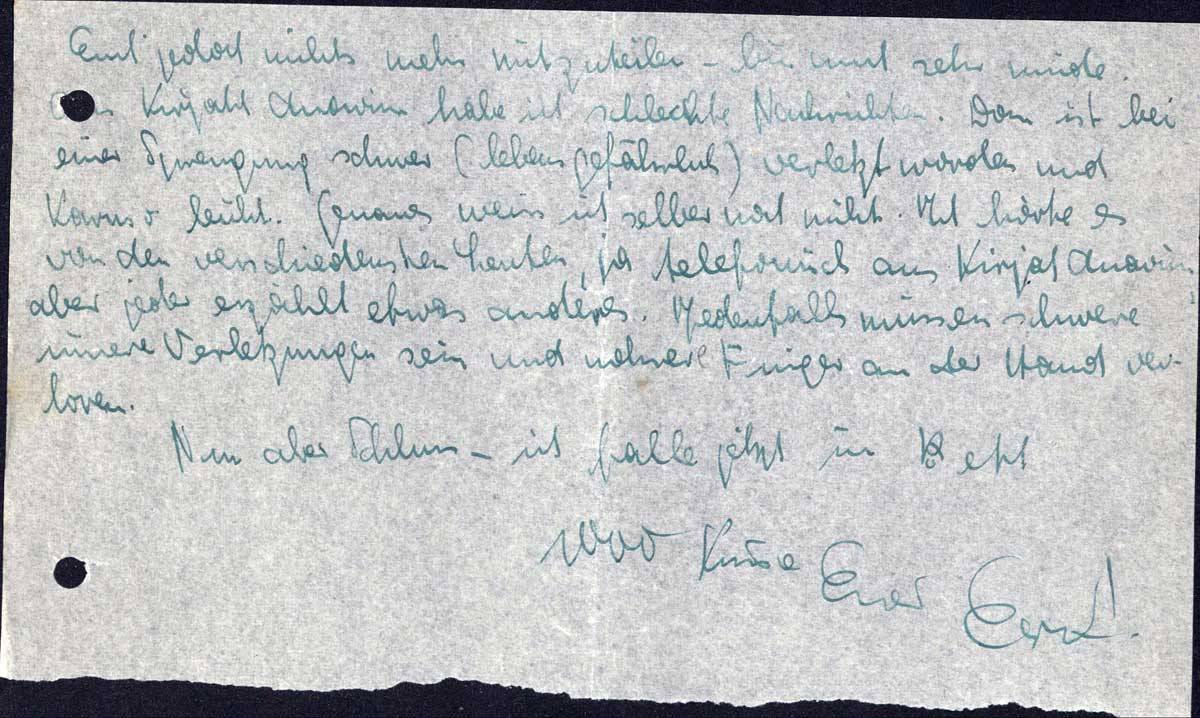 Euch jedoch nichts mehr mitzuteilen – bin und sehr müde.
Aus Kirjath Anavim habe ich schlechte Nachrichten. Dan ist bei
einer Sprengung schwer (lebensgefährlich) verletzt worden und
leicht. Genaues weiss ich selber noch nicht. Ich hörte es
von den verschiedensten Leuten, ja telefonisch aus Kirjat Anavim,
aber jeder erzählt etwas anderes. Jedenfalls müssen schwere
innere Verletzungen sein und mehrere Finger an der Hand ver-
loren.
Nun aber Schluss – ich falle jetzt in Bett
1000 Küsse Euer Ernst.